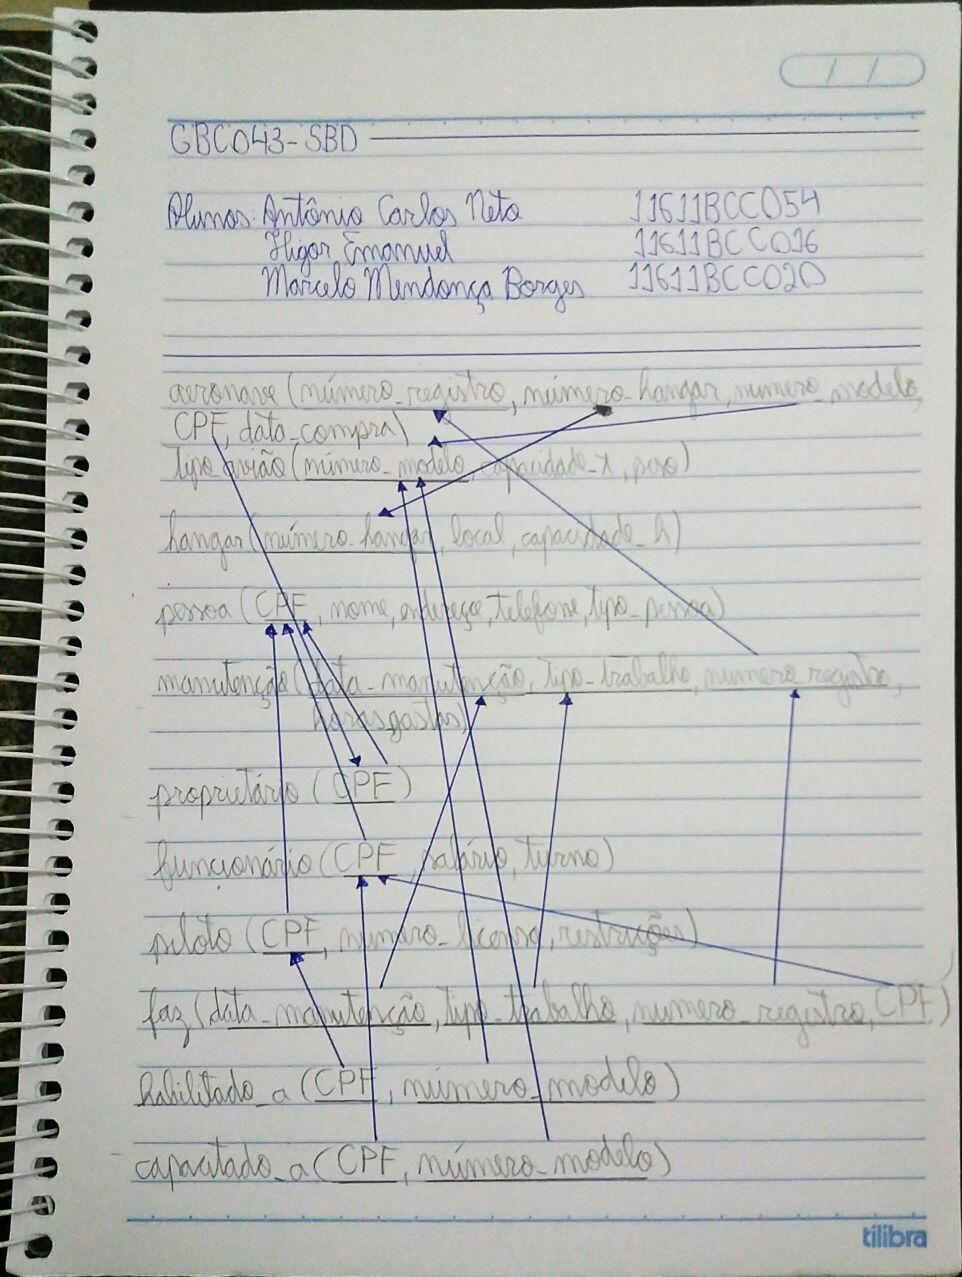 / /
GBC043-SBD
Alunos: Antônio Carlos Neto 11611BCC054
Higor Emanuel 11611BCC016
Marcelo Mendonça Borges 11611BCC020
aeronave (número_registro, número_hangar, numero_modelo,
CPF, data_compra)
tipo avião (número_modelo, capacidade_x, peso)
hangar (número_hangar, local, capacidade_h)
pessoa (CPF, nome, endereço, telefone, tipo_pessoa)
manutenção (data_manutenção, tipo_trabalho, numero_registro,
horasgastas)
proprietário (CPF)
funcionário (CPF, salário, turno)
piloto (CPF, numero_licensa, restrições)
faz (data_manutenção, tipo_trabalho, numero_registro, CPF)
habilitado_a (CPF, número_modelo)
capacitado_a (CPF, número_modelo)
tilibra